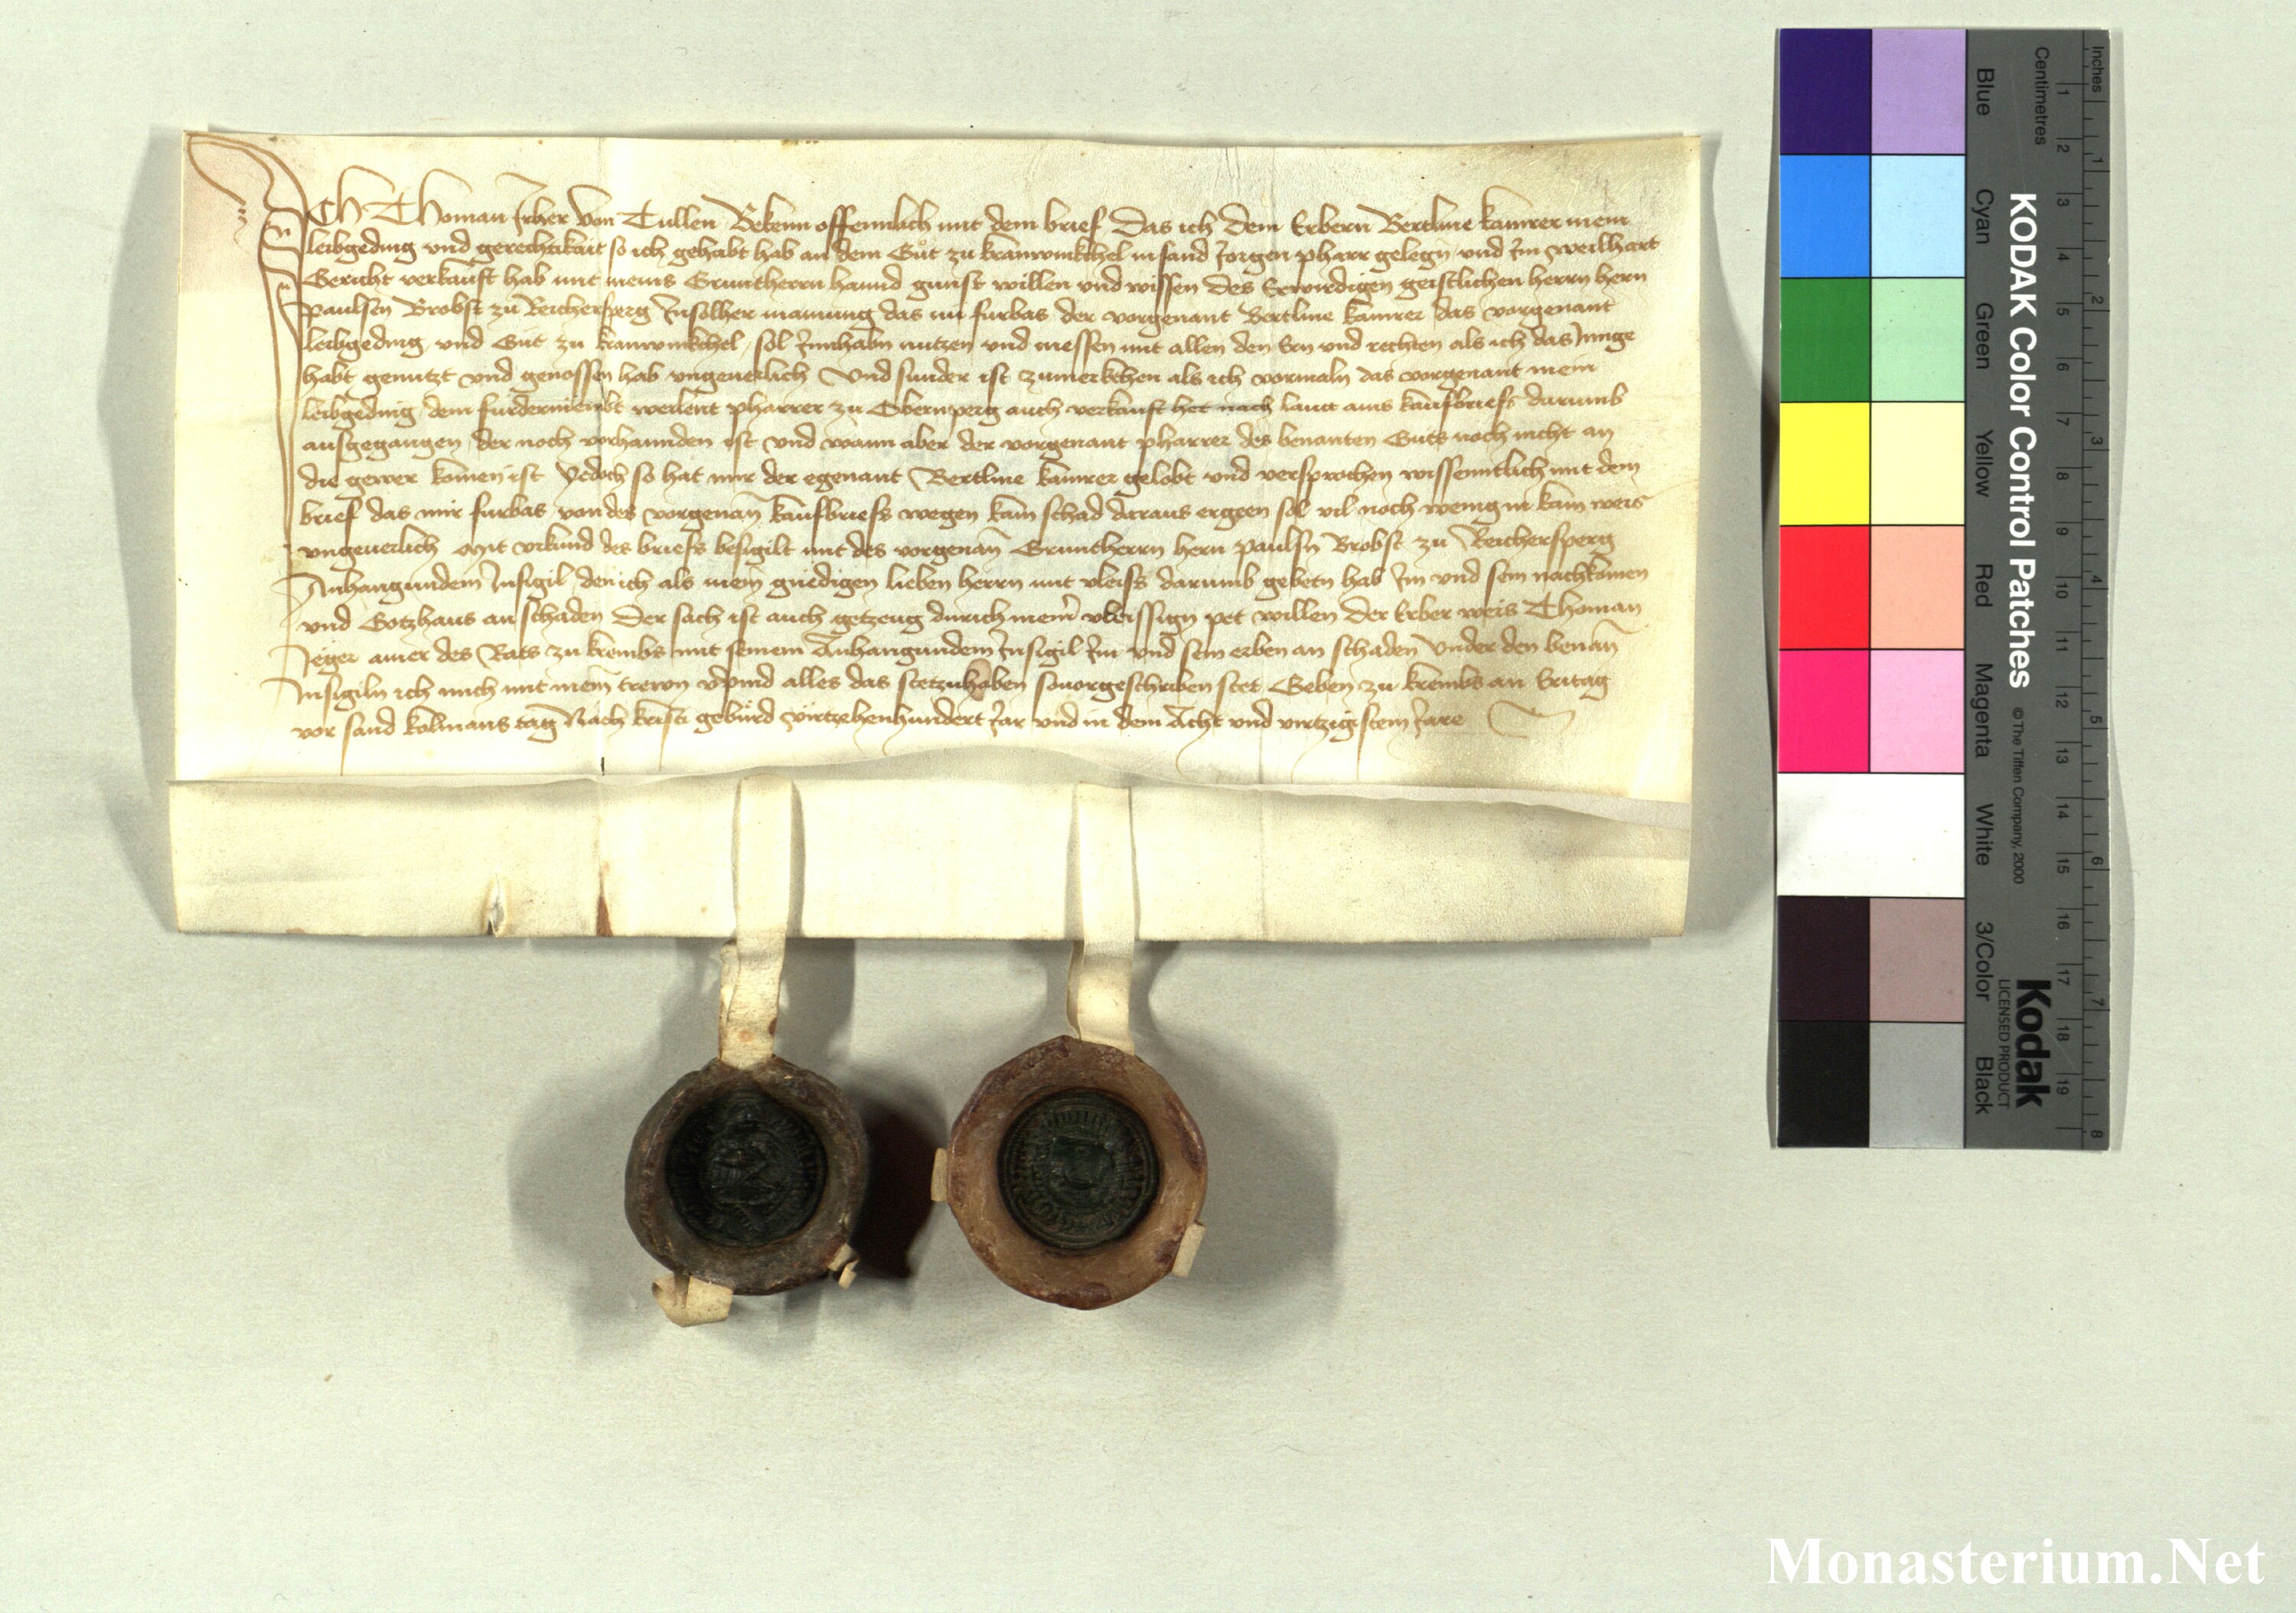 Ich Thoman Irher von Tullen Bekenn offennlich mit dem brief Das ich dem Erbern Bertlme kamrer mein
leibgeding und gerechtikait so ich gehabt hab an dem Gůt zu kranwinkchel in sand Jorgen pharr gelegn und Im weilhart
Gericht verkauft hab mit meins Gruntherrn hannd gunst willen und wissen des Erwirdigen geistlichen herrn hern
paulsen Brobst zu Reichersperg Insolher mainung das nu furbas der vorgenant Bertlme kamrer das vorgenant
leibgeding und Gut zu kranwinkchel sol Innhabn nutzen und niessen mit allen den Ern und rechten als ich das Innge
habt genutzt und genossen hab ungeuerlich Und sunder ist zumerkchen als ich vormaln das vorgenant mein
leibgeding dem weilent pharrer zu Obernperg auch verkauft het nach laut ains kaufbriefs darumb
ausgegangen der noch vorhannden ist und wann aber der vorgenant pharrer des benanten Guts noch nicht an
die gewer komen ist Yedoch so hat mir der egenant Bertlme kamrer gelobt und versprochen wissenntlich mit dem
brief das mir furbas von des vorgenan kaufbriefs wegen kain schad daraus ergeen sol vil noch wenig in kain weis
ungeuerlich Mit vrkund des briefs besigilt mit des vorgenan Gruntherrn hern paulsn Brobst zu Reichersperg
Anhangundem Insigil den ich als mein gnedigen lieben herrn mit vleiss darumb gebetn hab Im und sein nachkomen
und Gotzhaus an schaden Der sach ist auch getzeug durich meinr vleissign pet willen der Erber weis Thoman
Jeger ainer des Rats zu krembs mit seinem Anhangundem Insigil Im und sein erben an schaden Under den benan
Insigiln ich mich mit mein trewn verpind alles das stetzuhaben souorgeschriben stet Geben zu krembs an Eritag
vor sand kolmans tag Nach krists geburd virtzehenhundert Jar und in dem Acht und virtzigistem Jare
KODAK Color Control Patches
© The Tiffen Company, 2000
Kodak
LICENSED PRODUCT
Blue Cyan Green Yellow Red Magenta White 3/Color Black
Inches 1 2 3 4 5 6 7 8
Centimetres 1 2 3 4 5 6 7 8 9 10 11 12 13 14 15 16 17 18 19
Monasterium.Net